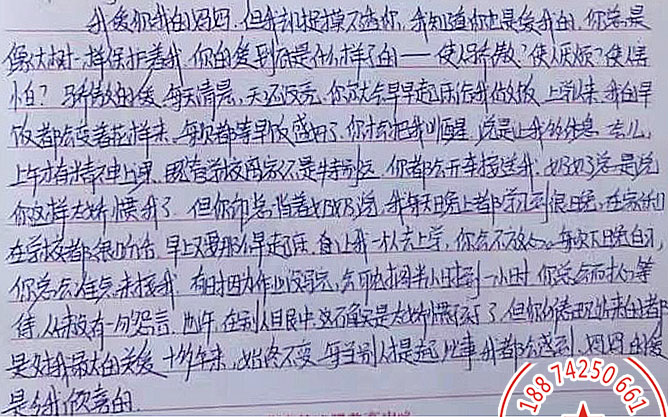 我爱你我的妈妈,但我却捉摸不透你,我知道你也是爱我的,你总是
像大树一样保护着我,你的爱到底是什么样子的——使人骄傲?使人厌烦?使人害
怕?骄傲的爱,每天清晨,天还没亮,你就会早早起床给我做饭,上学以来,我的早
饭都会变着花样来,每次都等早饭盛好了,你才会把我叫醒,说是让我多休息一会儿,
上午才有精神上课,既管学校离家不是特别远,你都会开车接送我,奶奶总是说
你这样太娇惯我了,但你却总背着奶奶说,我每天晚上都学习到很晚,在家
在学校都很吃苦,早上又要那么早起床,自让我一个人去上学,你会不放心,每次下晚自习,
你总会准点来接我,有时因为作业没写完,会可能拖半小时到一小时,你总会耐心等
待,从来没有一句怨言,也许,在别人眼中,这不确实是太娇惯孩子了,但你的表现给来的都
是对我最大的关爱,十几年来,始终不变,每当别人提起此事,我都会感到,妈妈的爱
是令我欣喜的.
18874250661